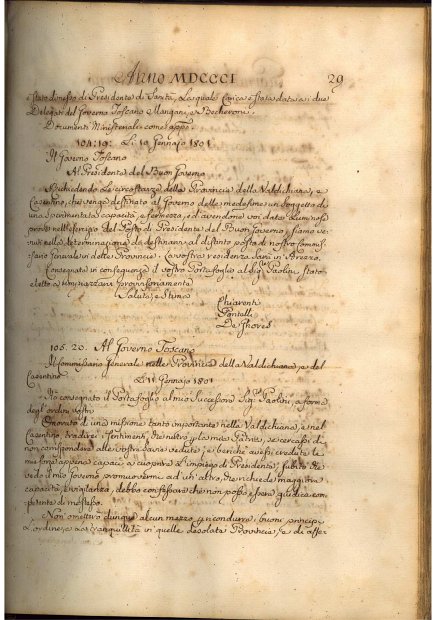 Anno MDCCCI 29
stato di Presidente di Sanità, la quale carica è stata data ai due
Delegati del Governo Toscano Mangani, e Becheroni.
Documenti Ministeriali come app:
104: 19: Li 10 Gennajo 1801
Il Governo Toscano
Al Presidente del Buon Governo
Richiedendo le circostanze della Provincia della Valdichiana, e
Casentino, che venga destinato al Governo delle medesime un Soggetto di
una sperimentata capacità, e fermezza, ed avendone voi date luminose
prove nell'esercizio del Posto di Presidente del Buon Governo, siamo ve-
nuti nella determinazione di destinarvi al distinto posto di nostro Commis-
sario Generale in dette Provincie. La vostra residenza sarà in Arezzo.
Consegnate in conseguenza il vostro Portafoglio al Sig: Paolini stato
eletto a rimpiazzarvi provvisoriamente
Salute, e Stima
Chiarenti
Pontelli
De Ghores
105. 20. Al Governo Toscano
Il Commissario Generale nelle Provincie della Valdichiana, e del
Casentino
Li 11 Gennajo 1801
Ho consegnato il Portafoglio al mio Successore Sig: Paolini, a forma
degl'ordini vostri
Onorato di una missione tanto importante nella Valdichiana, e nel
Casentino, tradirei i sentimenti, che nutro per la mia Patria, se cercassi di
non corrispondere alle vostre savie vedute; e benchè avessi credute le
mie forze appena capaci a cuoprire l'impiego di Presidente, subito che
vedo il mio Governo promuovermi ad un'altro, che richiede maggiore
capacità, e vigilanza, debbo confessare che non posso essere giudice com-
petente di me stesso.
Non ometterò dunque alcun mezzo per ricondurre i buoni principj,
l'ordine, e la tranquillità in quelle desolate Provincie, e di asser-